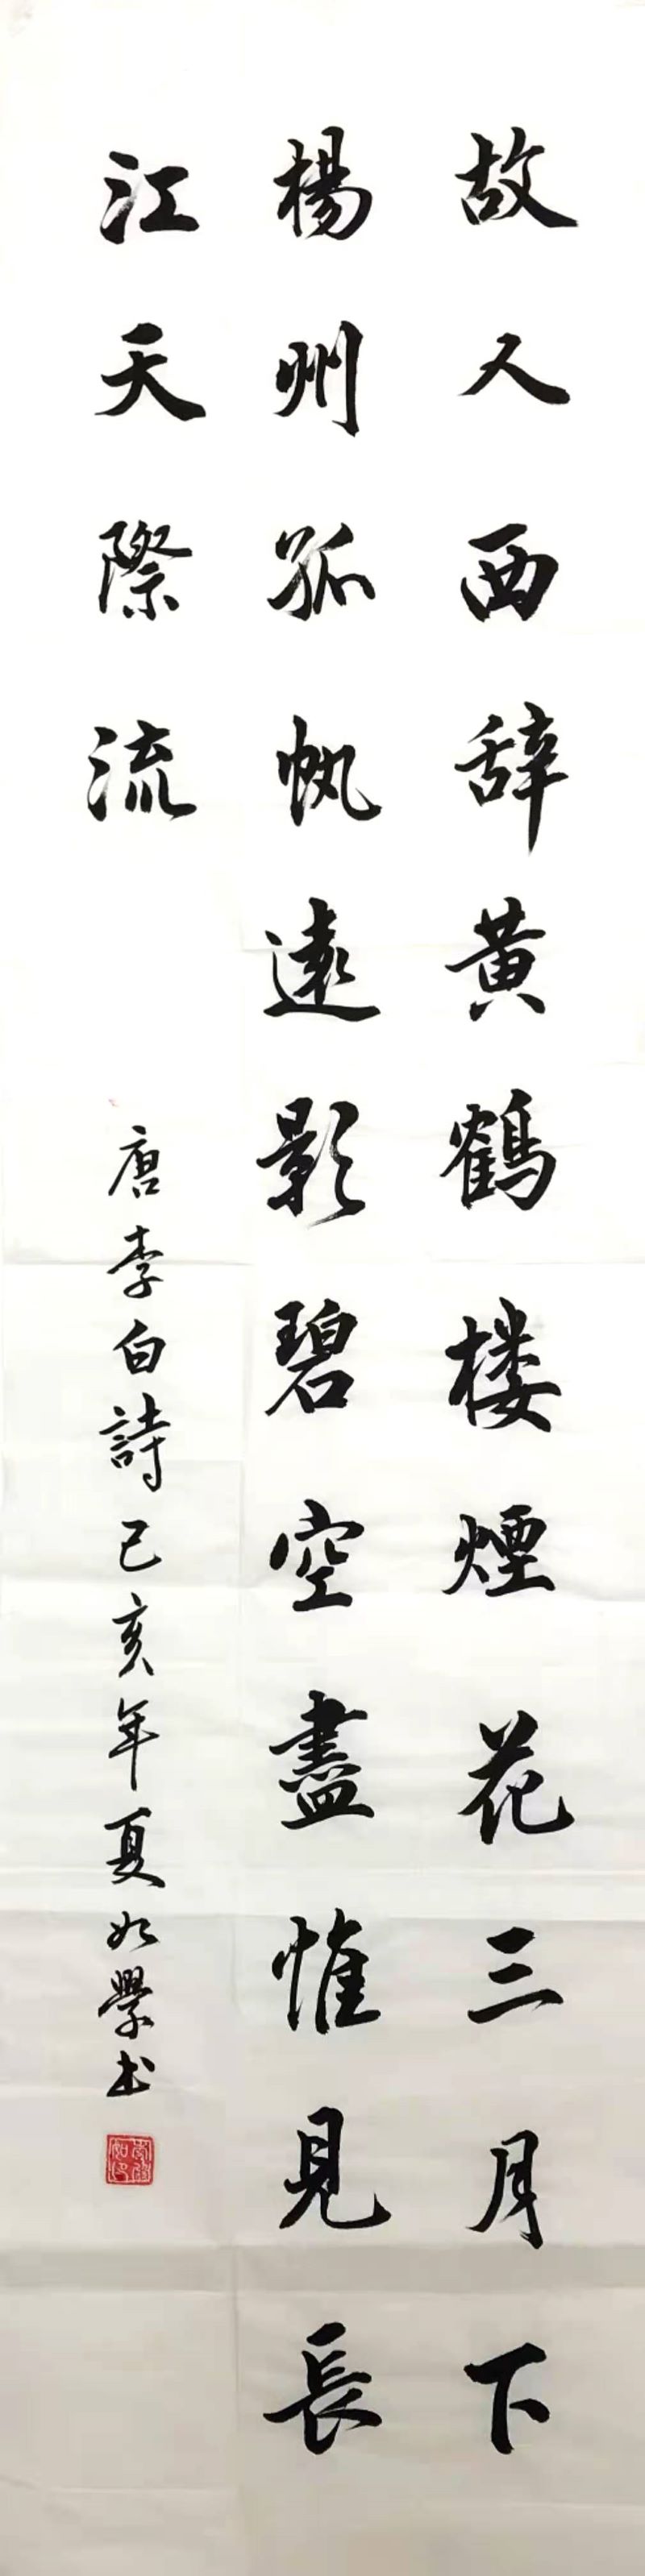 故人西辞黄鹤楼煙花三月下
楊州孤帆遠影碧空盡惟見長
江天際流
唐李白詩己亥年夏如學书